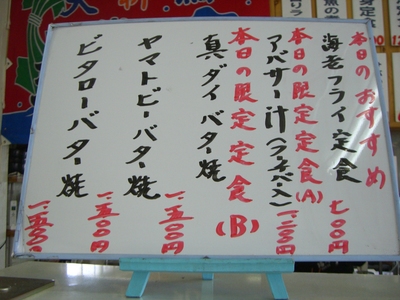 本日のおすすめ
海老フライ定食 七〇〇円
本日の限定定食(A)
アバサー汁(フーチバー入) 一、二〇〇円
本日の限定定食(B)
真ダイバター焼 一、五〇〇円
ヤマトビーバター焼 一、五〇〇円
ビタローバター焼 一、五〇〇円